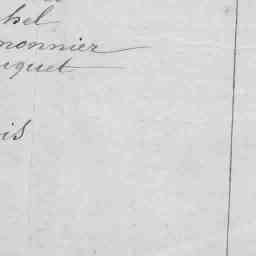 hel
monnier
uquet
is